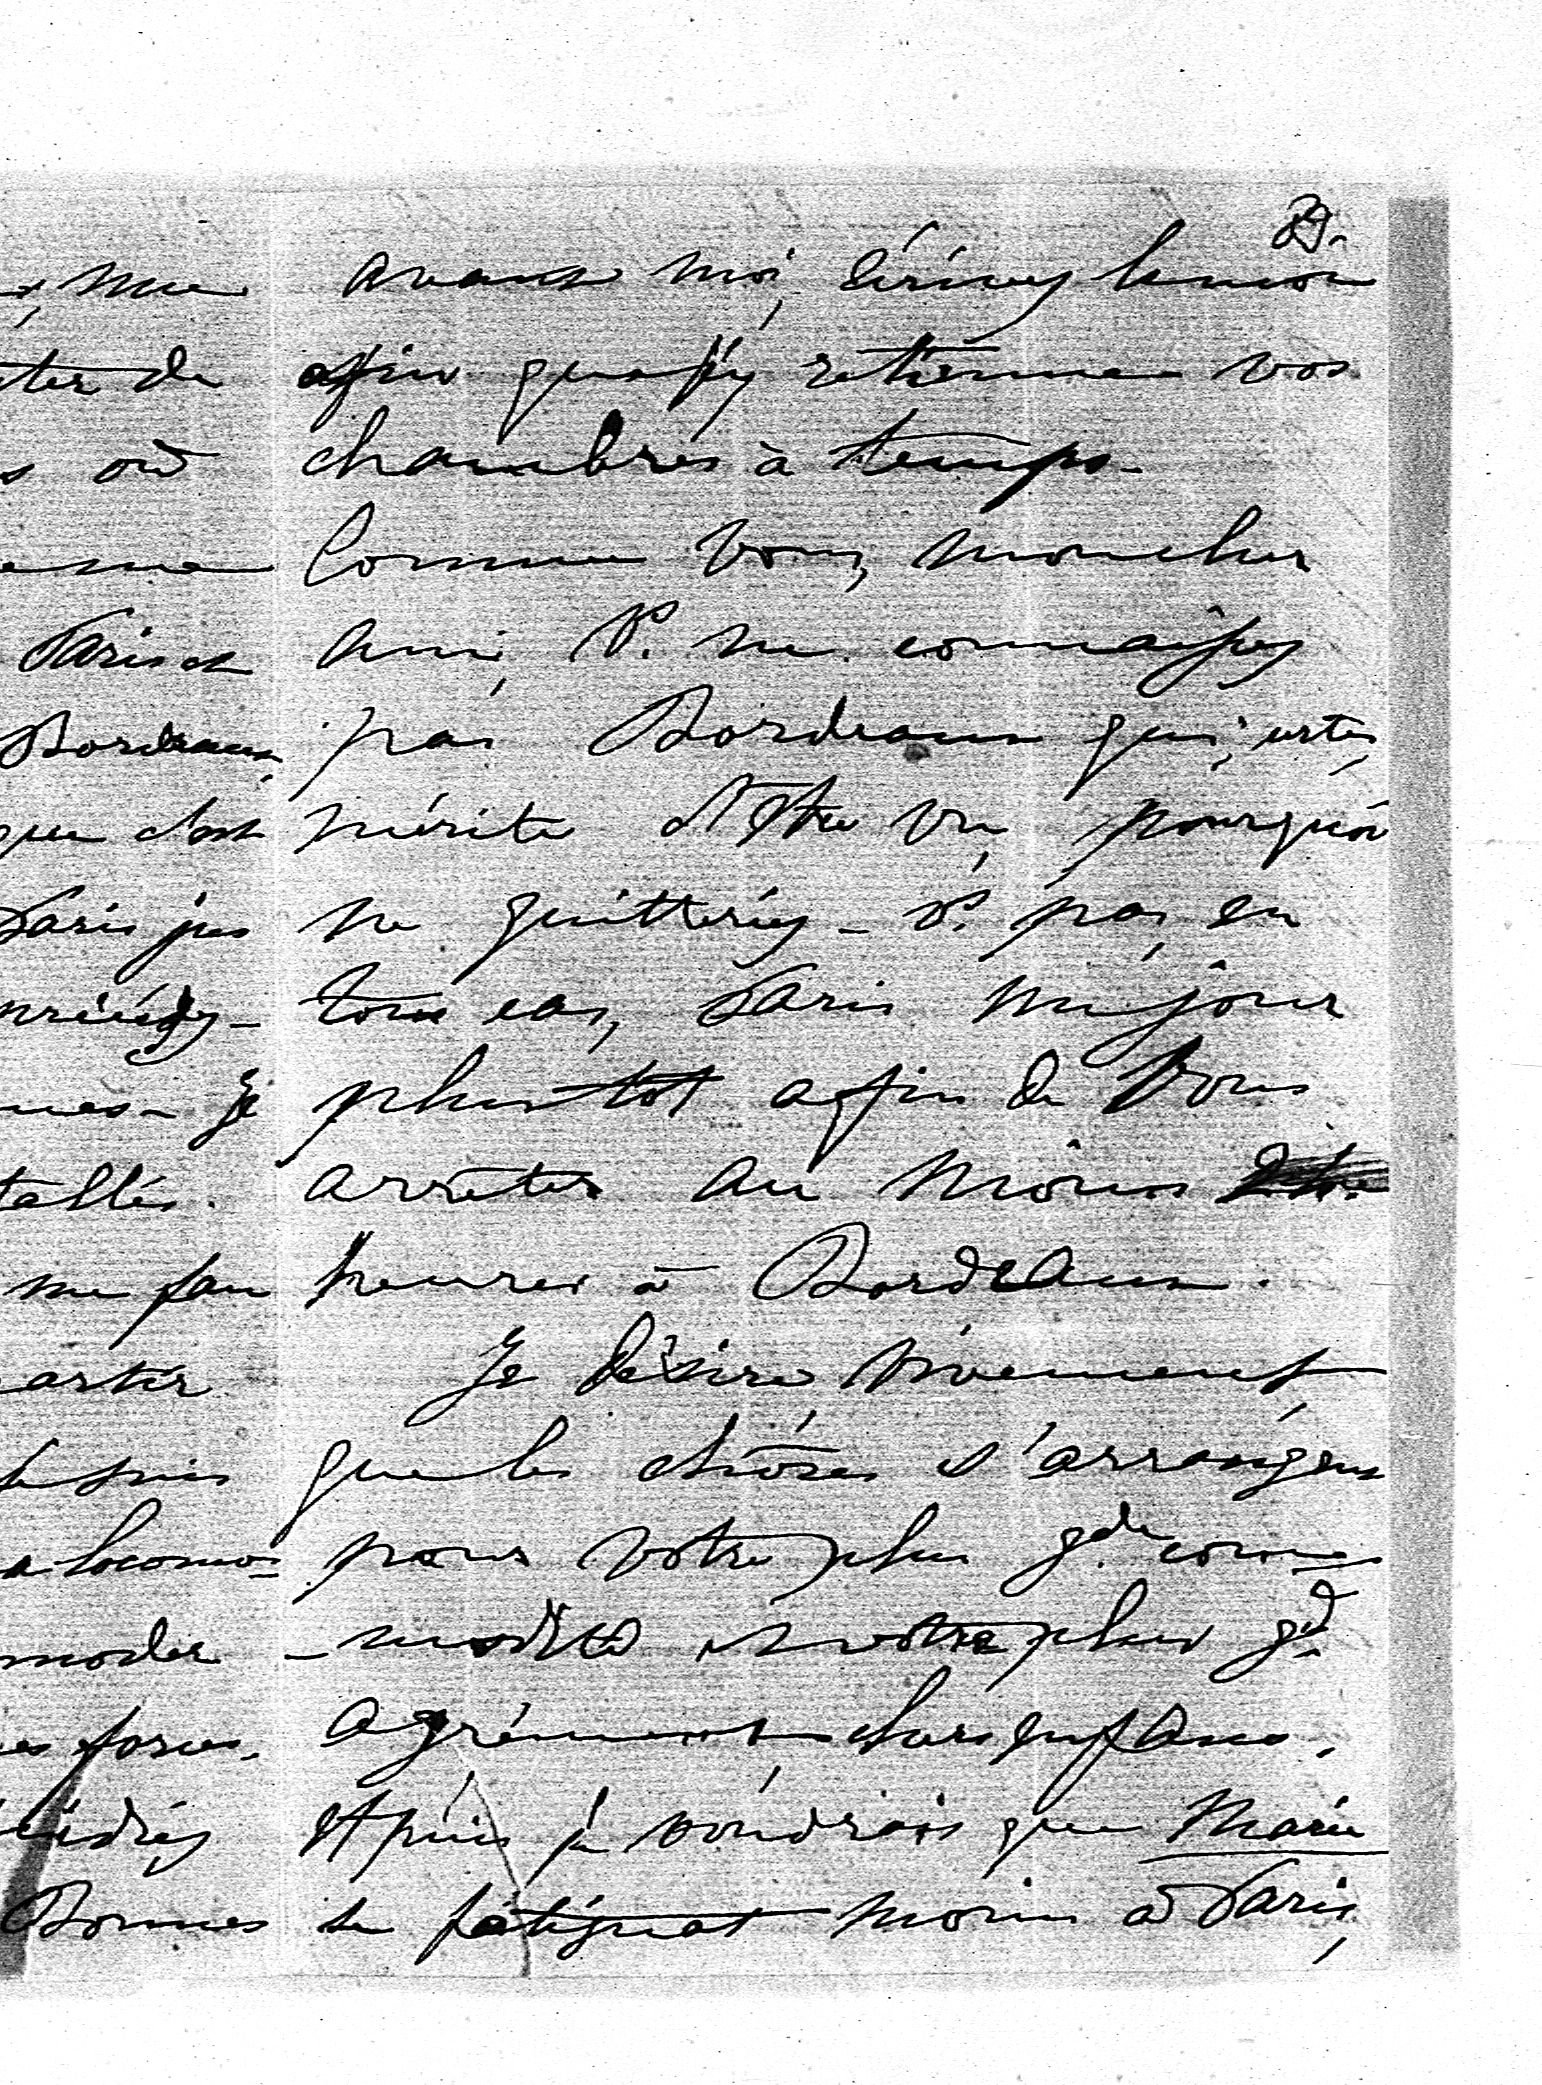 29.
avant moi, écrivez le moi
afin que j'y retienne vos
chambres à temps.
Comme vous, mon cher
ami, Vs. ne connaissez
pas Bordeaux qui, certes,
mérite d'être vu, pourquoi
ne quitteriez-vs. pas, en
tous cas, Paris un jour
plus tôt afin de vous
arrêter au moins
heures à Bordeaux.
Je désire vivement
que les choses s'arrangent
pour votre plus gde. com-
-modité et votre plus gd.
agrément chers enfans.
Et puis je voudrais que Marie
se fatiguat moins à Paris,
mue
ter de
s où
ame
Paris et
Bordeaux,
que c'est
Paris jus
nes- Je
tallés.
me fau
artir
suis
a locomo-
moder
es forces.
Bonnes